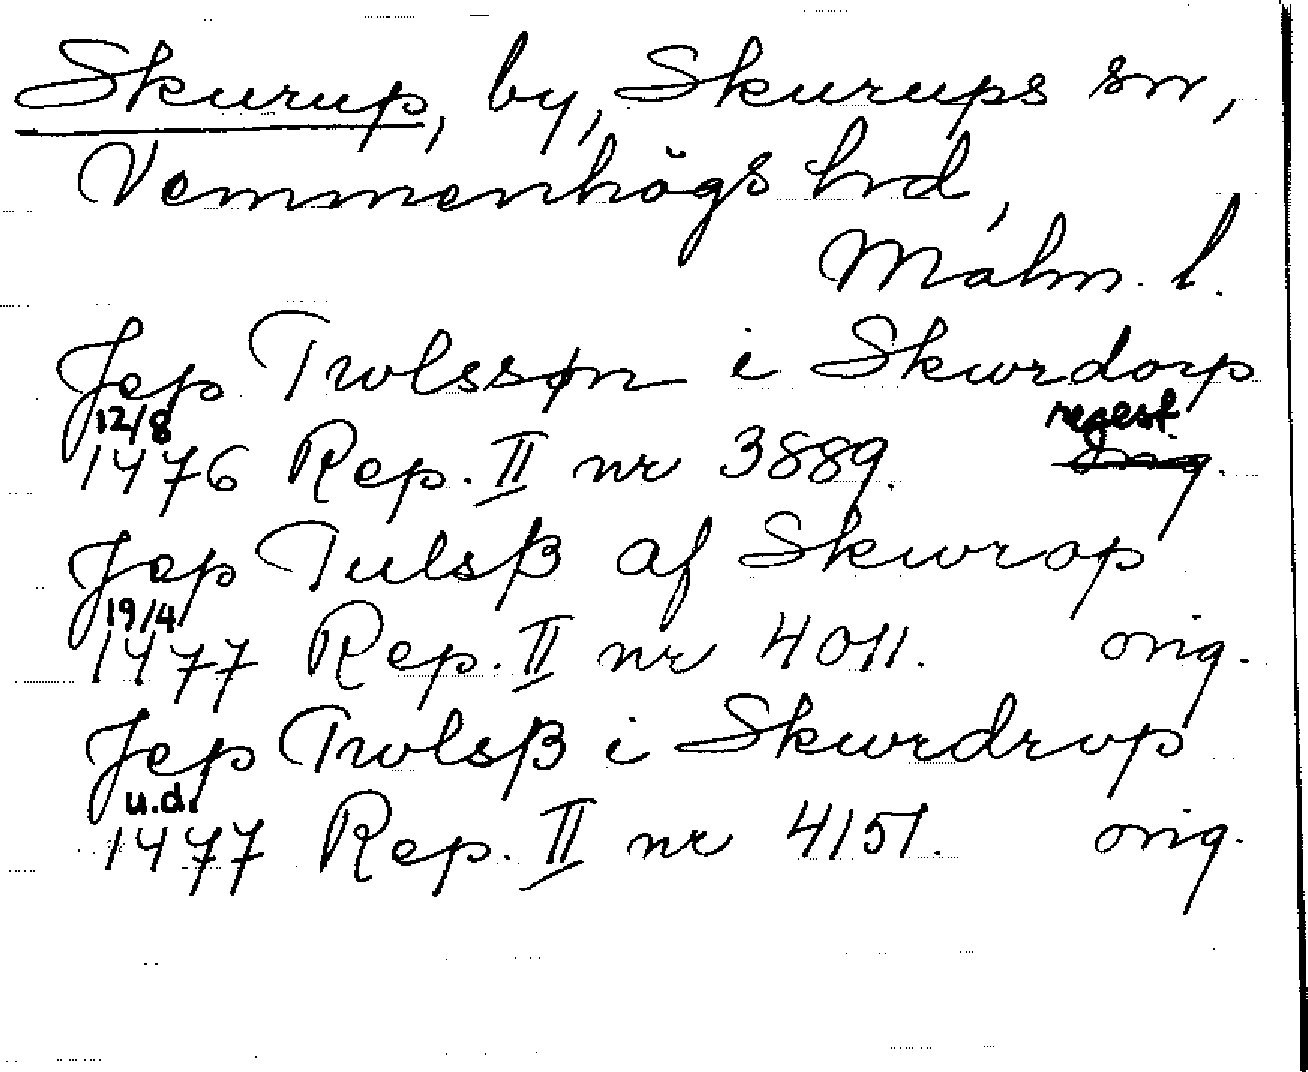 Skurup, by, Skurups sn,
Vemmenhögs hrd,
Malm. l.
Jep Twlssøn i Skwrdorp
12/8 regest.
1476 Rep. II nr 3889. orig.
Jep Tulsß af Skwrop
19/4
1477 Rep. II nr 4011. orig.
Jep Trwlsß i Skwrdrop
u.d.
1477 Rep. II nr 4151. orig.